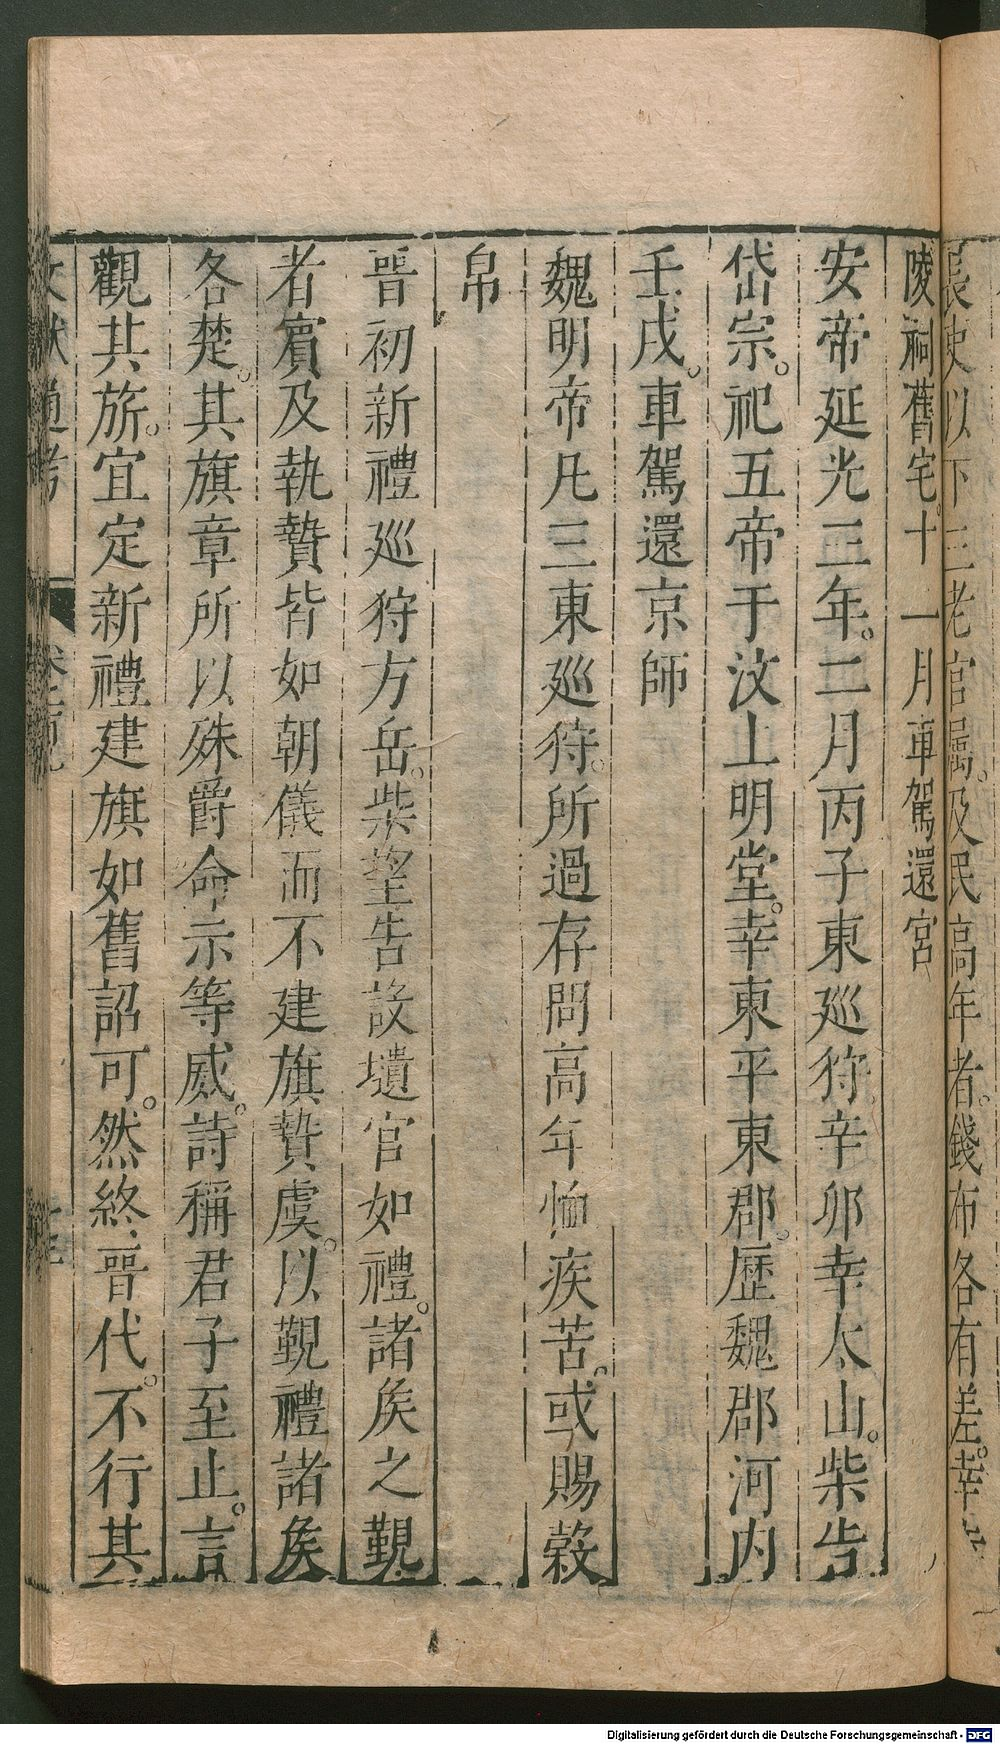 長史以下三老官屬。及民高年者。錢布各有差。幸
陵祠舊宅。十一月車駕還宮
安帝延光三年。二月丙子東廵狩。辛卯幸太山。柴告
岱宗。祀五帝于汶上明堂。幸東平東郡。歷魏郡河内
壬戌。車駕還京師
魏明帝凡三東廵狩。所過存問高年恤疾苦。或賜穀
帛
晉初新禮廵狩方岳。柴望告設壝官如禮。諸矦之覲
者賔及執贄皆如朝儀而不建旗贄虞。以覲禮諸矦
各楚。其旗章所以殊爵命示等威。詩稱君子至止。言
觀其旂。宜定新禮建旗如舊詔可。然終晉代。不行其
文獻通考
卷一百九
十三
Digitalisierung gefördert durch die Deutsche Forschungsgemeinschaft - DFG